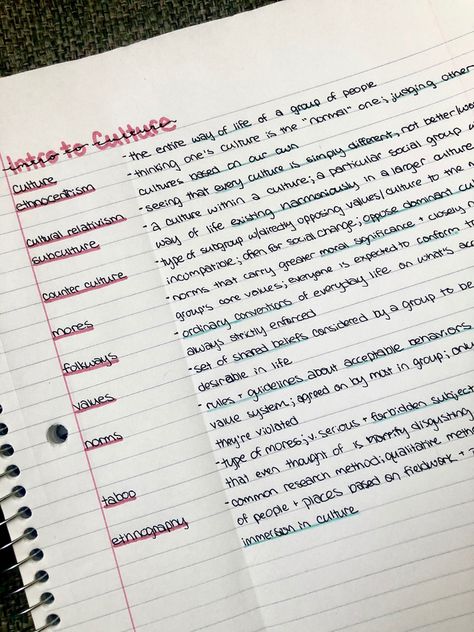 Intro to Culture
culture - the entire way of life of a group of people
ethnocentrism - thinking one's culture is the "normal" one; judging other
cultures based on our own
cultural relativism - seeing that every culture is simply different, not better/wor
subculture - a culture within a culture; a particular social group w
way of life existing harmoniously in a larger culture
counter culture - type of subgroup w/directly opposing values/culture to the
incompatible; often for social change; oppose dominant cu
mores - norms that carry greater moral significance + closely
group's core values; everyone is expected to conform
folkways - ordinary conventions of everyday life on what's acc
always strictly enforced
values - set of shared beliefs considered by a group to be
desirable in life
norms - rules + guidelines about acceptable behaviors
value system; agreed on by most in group; only
they're violated
taboo - type of mores; v. serious + forbidden subject
that even thought of is disgusting
ethnography - common research method; qualitative
of people + places based on fieldwork +
immersion in culture